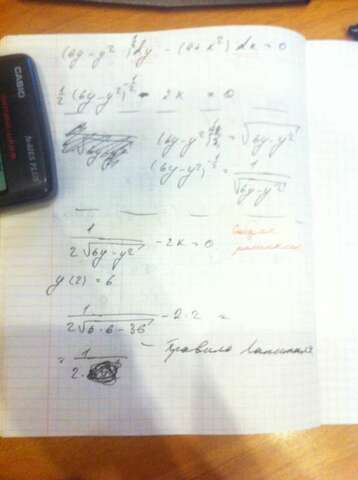 (6y-y²)^½ dy - (4+x²) dx = 0
½ (6y-y²)^-½ - 2x = 0
(6y-y²)^½ = √6y-y²
(6y-y²)^-½ = 1/√6y-y²
1/2√6y-y² - 2x = 0
Общее решение
y(2) = 6
1/2√6·6-36 - 2·2 =
- Правило Лапиталя
= 1/2·
CASIO